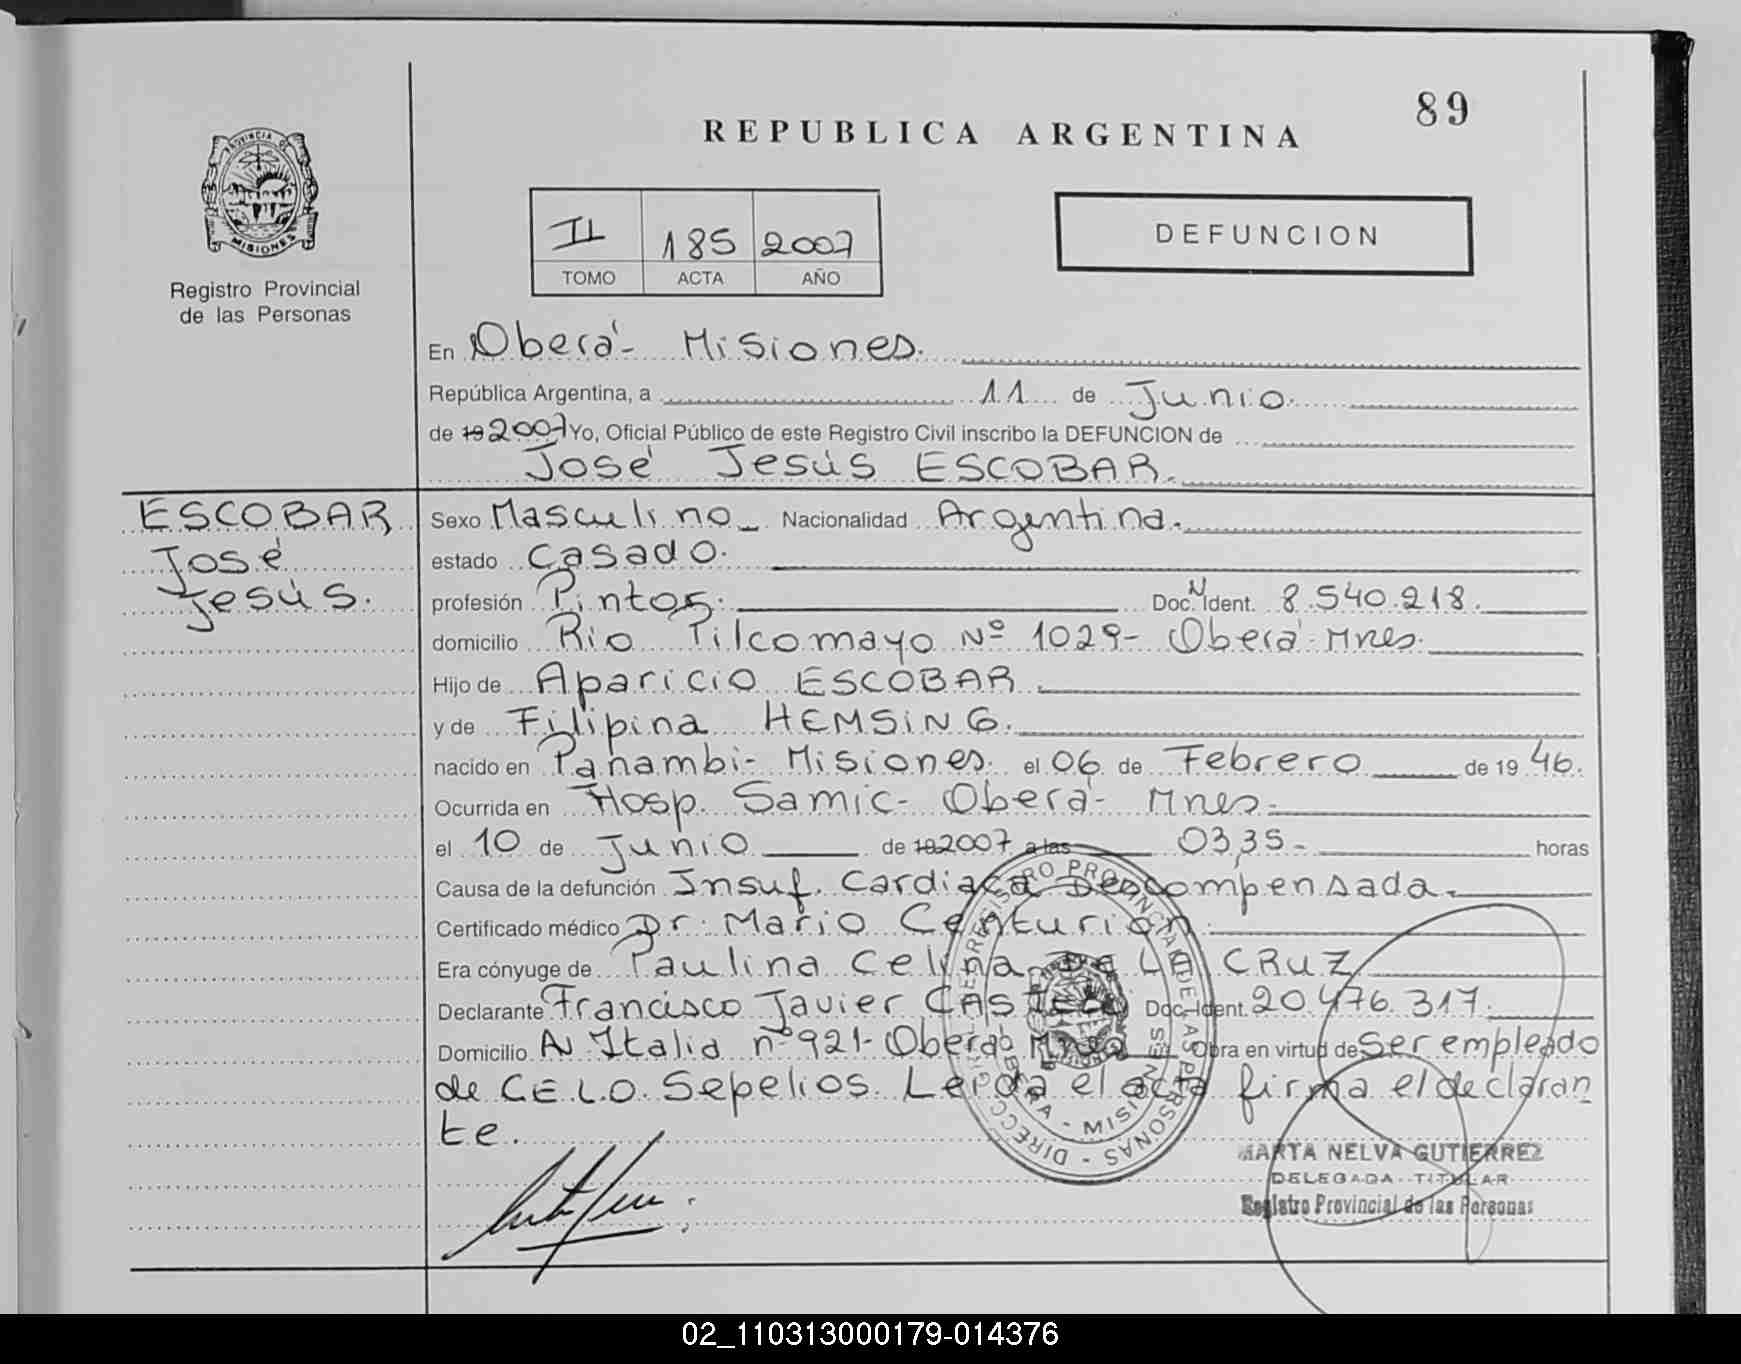 89
REPUBLICA ARGENTINA
PROVINCIA DE
MISIONES
Registro Provincial
de las Personas
II 185 2007
TOMO ACTA AÑO
DEFUNCION
En Oberá - Misiones.
República Argentina, a 11 de Junio
de 19 2007 Yo, Oficial Público de este Registro Civil inscribo la DEFUNCION de
José Jesús ESCOBAR.
ESCOBAR
José
Jesús.
Sexo Masculino Nacionalidad Argentina.
estado Casado.
profesión Pintor. Doc. N Ident. 8.540.218.
domicilio Rio Pilcomayo Nº 1029- Oberá - Mnes.
Hijo de Aparicio ESCOBAR
y de Filipina HEMSiNG.
nacido en Panambi- Misiones. el 06 de Febrero de 19 46.
Ocurrida en Hosp. Samic- Oberá- Mnes.
el 10 de Junio de 19 2007 a las 03,35- horas
Causa de la defunción Insuf. Cardiaca Descompensada.
Certificado médico Dr. Mario Centurión.
Era cónyuge de Paulina Celina DE LA CRUZ
Declarante Francisco Javier Doc. Ident. 20.476.317.
Domicilio Av Italia nº 921- Oberá Mnes Obra en virtud de Ser empleado
de C.E.L.O. Sepelios. Leida el acta firma el declaran
te.
DIRECC REGISTRO PROVINCIAL DE LAS PERSONAS -
OBERA - MISIONES
MARTA NELVA GUTIERREZ
DELEGADA TITULAR
Registro Provincial de las Personas
02_110313000179-014376